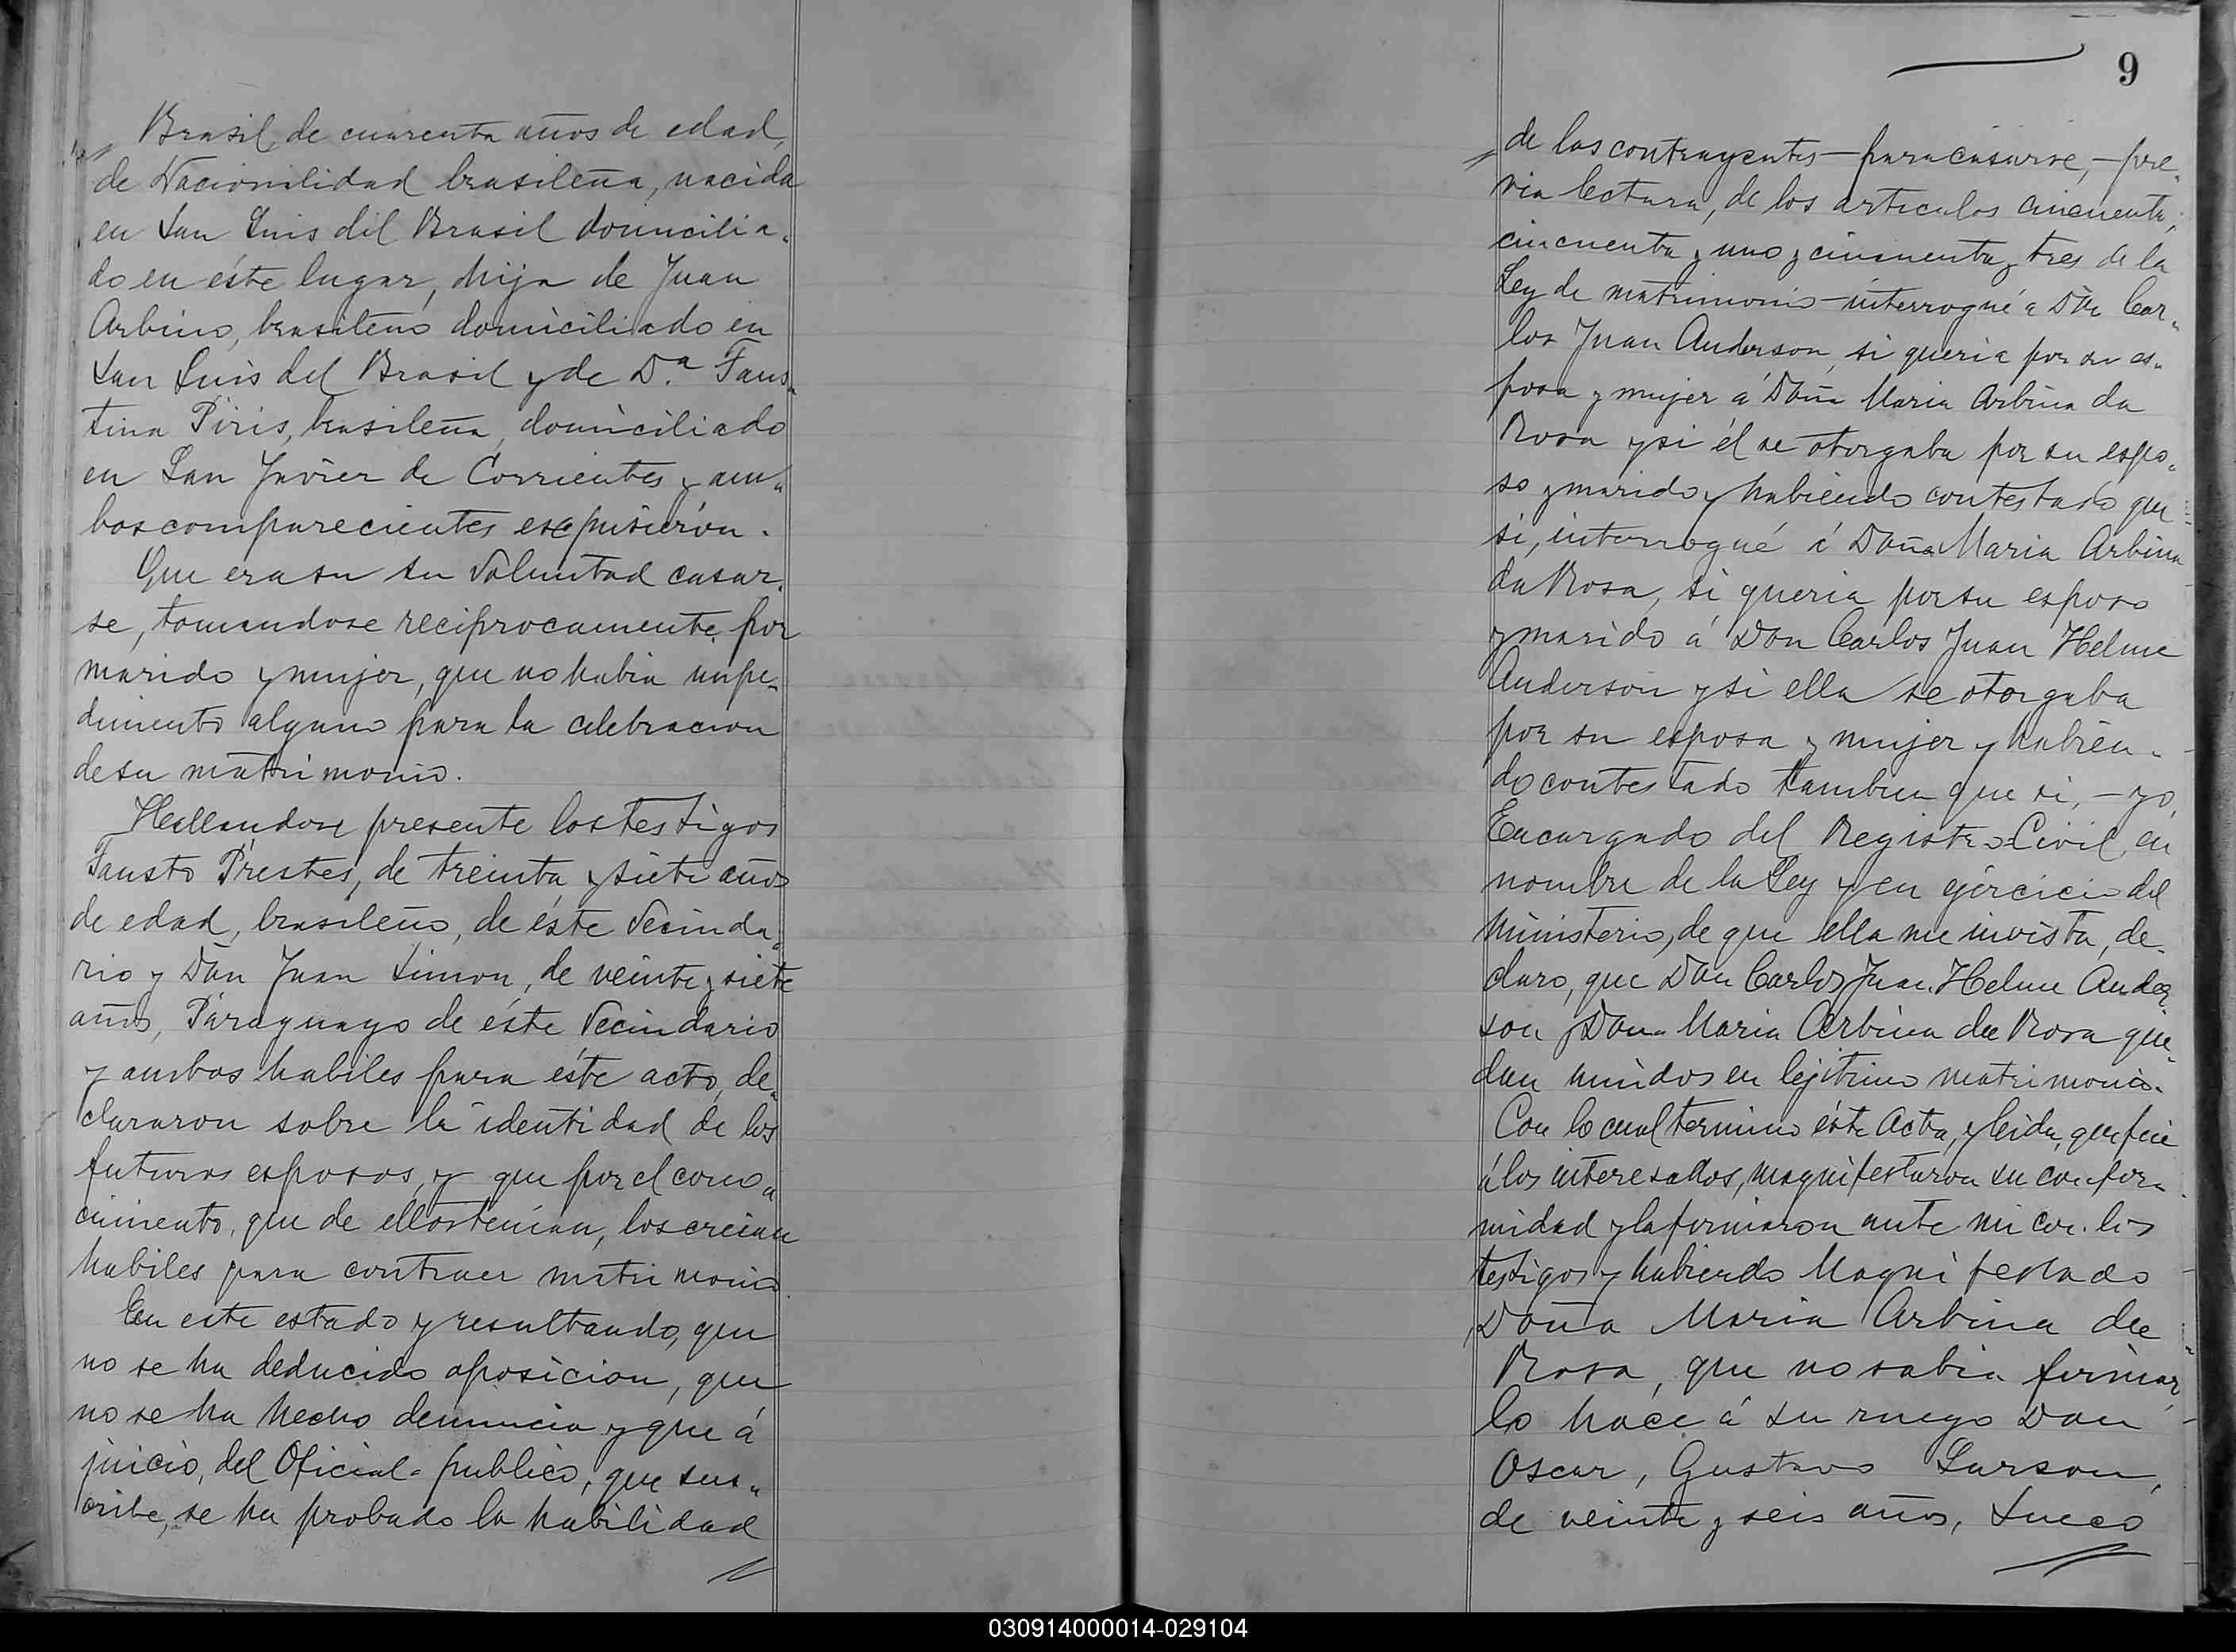 Brasil, de cuarenta años de edad,
de Nacionilidad brasileña, nacida
en San Luis del Brasil domicilia„
do en éste lugar, hija de Juan
Arbino, brasileño domiciliado en
San Luis del Brasil y de D.ª Faus„
tina Piris, brasileña, domiciliado
en San Javier de Corrientes y am„
bos comparecientes expusieron.
Que era su su Voluntad casar„
se, tomandose reciprocamente por
marido y mujer, que no habia impe„
dimento alguno para la celebracion
de su matrimonio.
Hallandose presente los testigos
Fausto Prestes, de treinta y siete años
de edad, brasileño, de éste Vecinda„
rio y Dón Juan Simon, de veinte y siete
años, Paraguayo de éste Vecindario
y ambos habiles para éste acto, de„
clararon sobre la identidad de los
futuros esposos, y que por el cono„
cimiento, que de ellos tenian, los creian
habiles para contraer matrimonio.
En este estado y resultando, que
no se ha deducido oposicion, que
no se ha hecho denuncia y que á
juicio, del Oficial publico, que sus„
cribe, se ha probado la habilidad
9
de los contrayentes – para casarse, – pre„
via lectura, de los articulos cincuenta,
cincuenta y uno y cincuenta y tres de la
Ley de matrimonio – interrogué a Dón Car„
los Juan Anderson, si queria por su es„
posa y mujer á Doña Maria Arbina da
Rosa y si él se otorgaba por su espo„
so y marido y habiendo contestado que
si, interrogué á Doña Maria Arbina
da Rosa, si queria por su esposo
y marido á Don Carlos Juan Helme
Anderson y si ella se otorgaba
por su esposa y mujer y habien„
do contestado tambien que si, – yo,
Encargado del Registro Civil, en
nombre de la Ley y en ejercicio del
Ministerio, de que ella me invista, de„
claro, que Dón Carlos Juan Helme Ander
son y Doña Maria Arbina da Rosa que„
dan unidos en lejitimo matrimonio.
Con lo cual termino éste Acta, y leida, que fué
á los interesados, magnifestaron su confor„
midad y la firmaron ante mi con los
testigos y habiendo Magnifestado
Doña Maria Arbina da
Rosa, que no sabia firmar,
lo hace á su ruego Don
Oscar, Gustavo Larson,
de veinte y seis años, Sueco
030914000014-029104